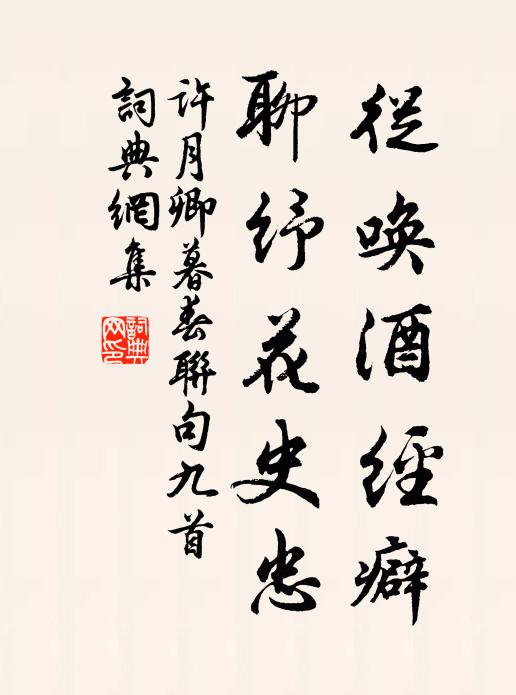 從喚酒經癖
聊紓花史忠
許月卿暮春聯句九首
詞典網集
詞典网印